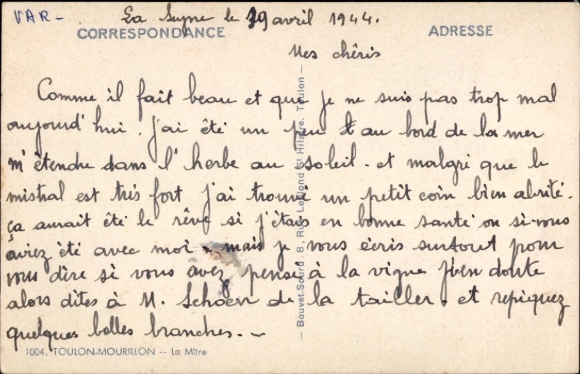 VAR-
La Seyne le 19 avril 1944.
CORRESPONDANCE
ADRESSE
Mes chéris
Comme il fait beau et que je ne suis pas trop mal
aujourd'hui. j'ai été un peu au bord de la mer
m'étendre dans l'herbe au soleil. et malgré que le
mistral est très fort j'ai trouvé un petit coin bien abrité.
ça aurait été le rêve si j'étais en bonne santé ou si vous
aviez été avec moi. mais je vous écris surtout pour
vous dire si vous avez pensé à la vigne j'en doute
alors dites à M. de la tailler. et repiquez
quelques belles branches.
1004. TOULON-MOURILLON -- La Mitre
Bouvet-Sourd, 8, Rue St Hilaire, Toulon